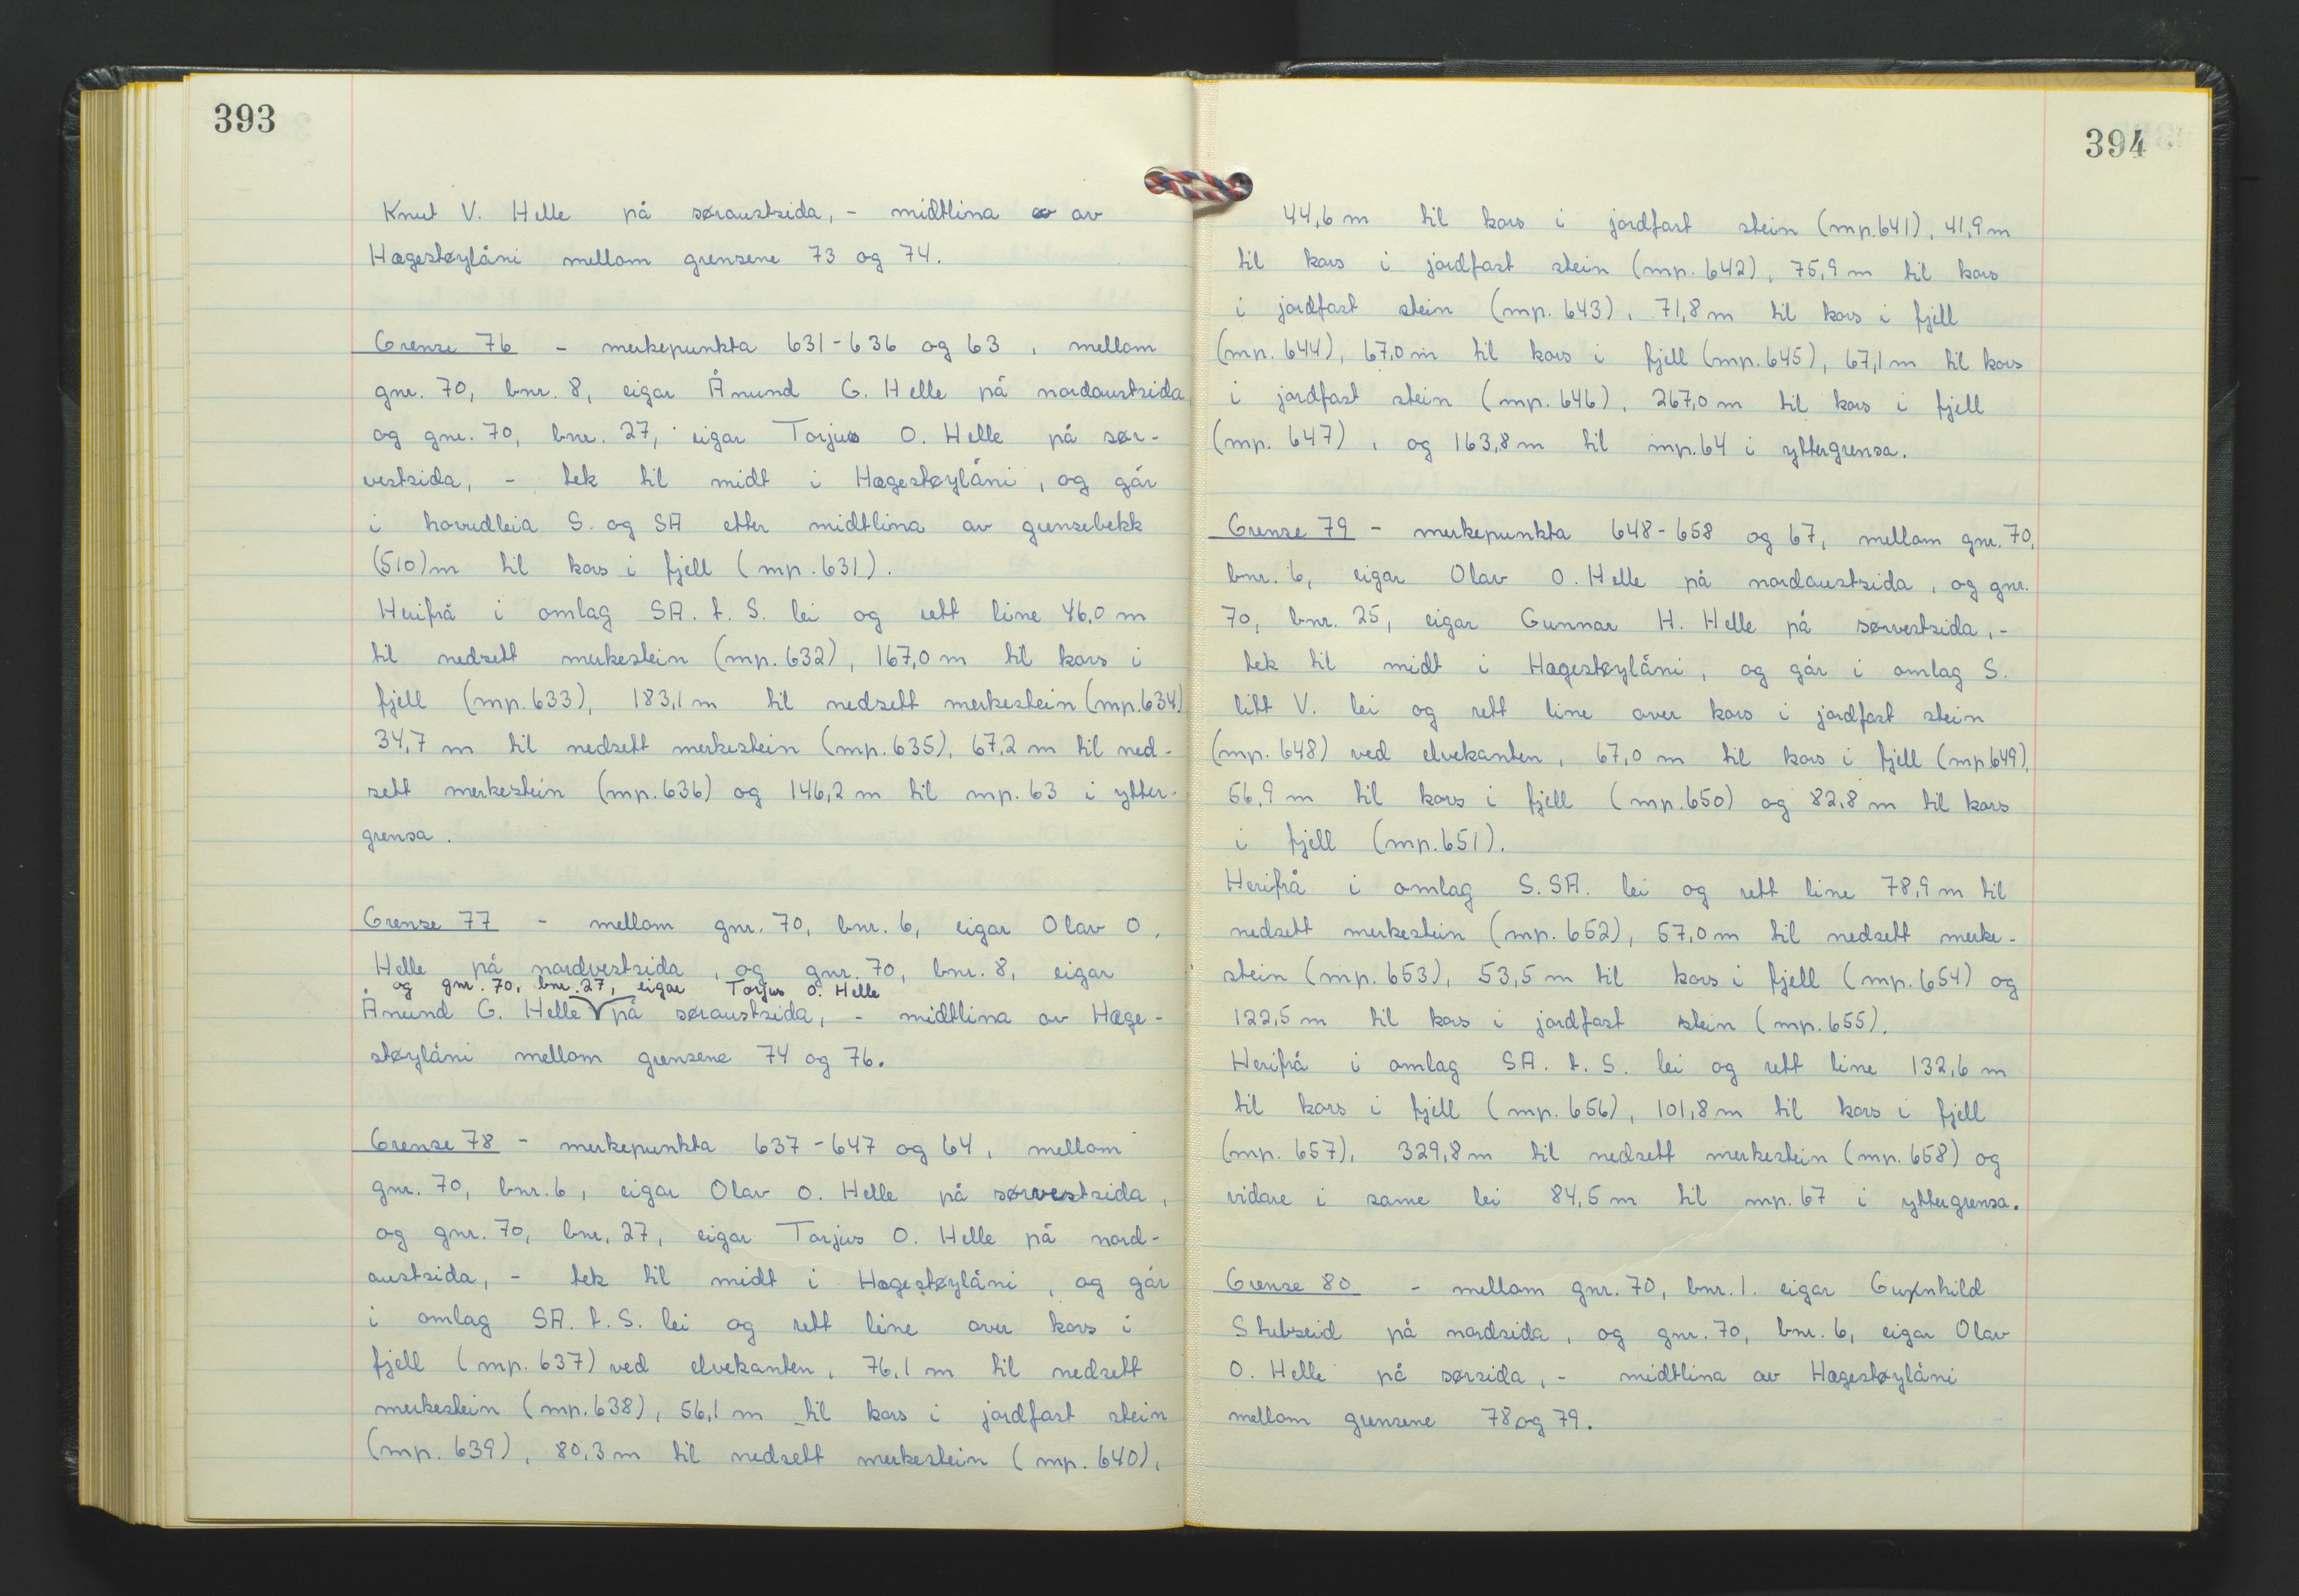 393
Knut V. Helle på søraustsida, - midtlina av
Hægestøylåni mellom grensene 73 og 74.
Grense 76 - merkepunkta 631-636 og 63, mellom
gnr. 70, bnr. 8, eigar Ånund G. Helle på nordaustsida,
og gnr. 70, bnr. 27, eigar Torjus O. Helle på sør-
vestsida, - tek til midt i Hægestøylåni, og går
i hovudleia S. og SA etter midtlina av grensebekk
(510)m til kors i fjell (mp. 631).
Herifrå i omlag SA. t. S. lei og rett line 46,0 m
til nedsett merkestein (mp. 632), 167,0 m til kors i
fjell (mp. 633), 183,1 m til nedsett merkestein (mp. 634)
34,7 m til nedsett merkestein (mp. 635), 67,2 m til ned-
sett merkestein (mp. 636) og 146,2 m til mp. 63 i ytter-
grensa.
Grense 77 - mellom gnr. 70, bnr. 6, eigar Olav O.
Helle på nordvestsida, og gnr. 70, bnr. 8, eigar
og gnr. 70, bnr. 27, eigar Torjus O. Helle
Ånund G. Helle på søraustsida, - midtlina av Hæge-
støylåni mellom grensene 74 og 76.
Grense 78 - merkepunkta 637-647 og 64, mellom
gnr. 70, bnr. 6, eigar Olav O. Helle på sørvestsida,
og gnr. 70, bnr. 27, eigar Torjus O. Helle på nord-
austsida, - tek til midt i Hægestøylåni, og går
i omlag SA. t. S. lei og rett line over kors i
fjell (mp. 637) ved elvekanten, 76,1 m til nedsett
merkestein (mp. 638), 56,1 m til kors i jordfast stein
(mp. 639), 80,3 m til nedsett merkestein (mp. 640),
394
44,6 m til kors i jordfast stein (mp. 641), 41,9 m
til kors i jordfast stein (mp. 642), 75,9 m til kors
i jordfast stein (mp. 643), 71,8 m til kors i fjell
(mp. 644), 67,0 m til kors i fjell (mp. 645), 67,1 m til kors
i jordfast stein (mp. 646), 267,0 m til kors i fjell
(mp. 647), og 163,8 m til mp. 64 i yttergrensa.
Grense 79 - merkepunkta 648-658 og 67, mellom gnr. 70,
bnr. 6, eigar Olav O. Helle på nordaustsida, og gnr.
70, bnr. 25, eigar Gunnar H. Helle på sørvestsida, -
tek til midt i Hægestøylåni, og går i omlag S.
litt V. lei og rett line over kors i jordfast stein
(mp. 648) ved elvekanten, 67,0 m til kors i fjell (mp 649),
56,9 m til kors i fjell (mp. 650) og 82,8 m til kors
i fjell (mp. 651).
Herifrå i omlag S. SA. lei og rett line 78,9 m til
nedsett merkestein (mp. 652), 57,0 m til nedsett merke-
stein (mp. 653), 53,5 m til kors i fjell (mp. 654) og
122,5 m til kors i jordfast stein (mp. 655).
Herifrå i omlag SA. t. S. lei og rett line 132,6 m
til kors i fjell (mp. 656), 101,8 m til kors i fjell
(mp. 657), 329,8 m til nedsett merkestein (mp. 658) og
vidare i same lei 84,5 m til mp. 67 i yttergrensa.
Grense 80 - mellom gnr. 70, bnr. 1. eigar Gunnhild
Stubseid på nordsida, og gnr. 70, bnr. 6, eigar Olav
O. Helle på sørsida, - midtlina av Hægestøylåni
mellom grensene 78 og 79.